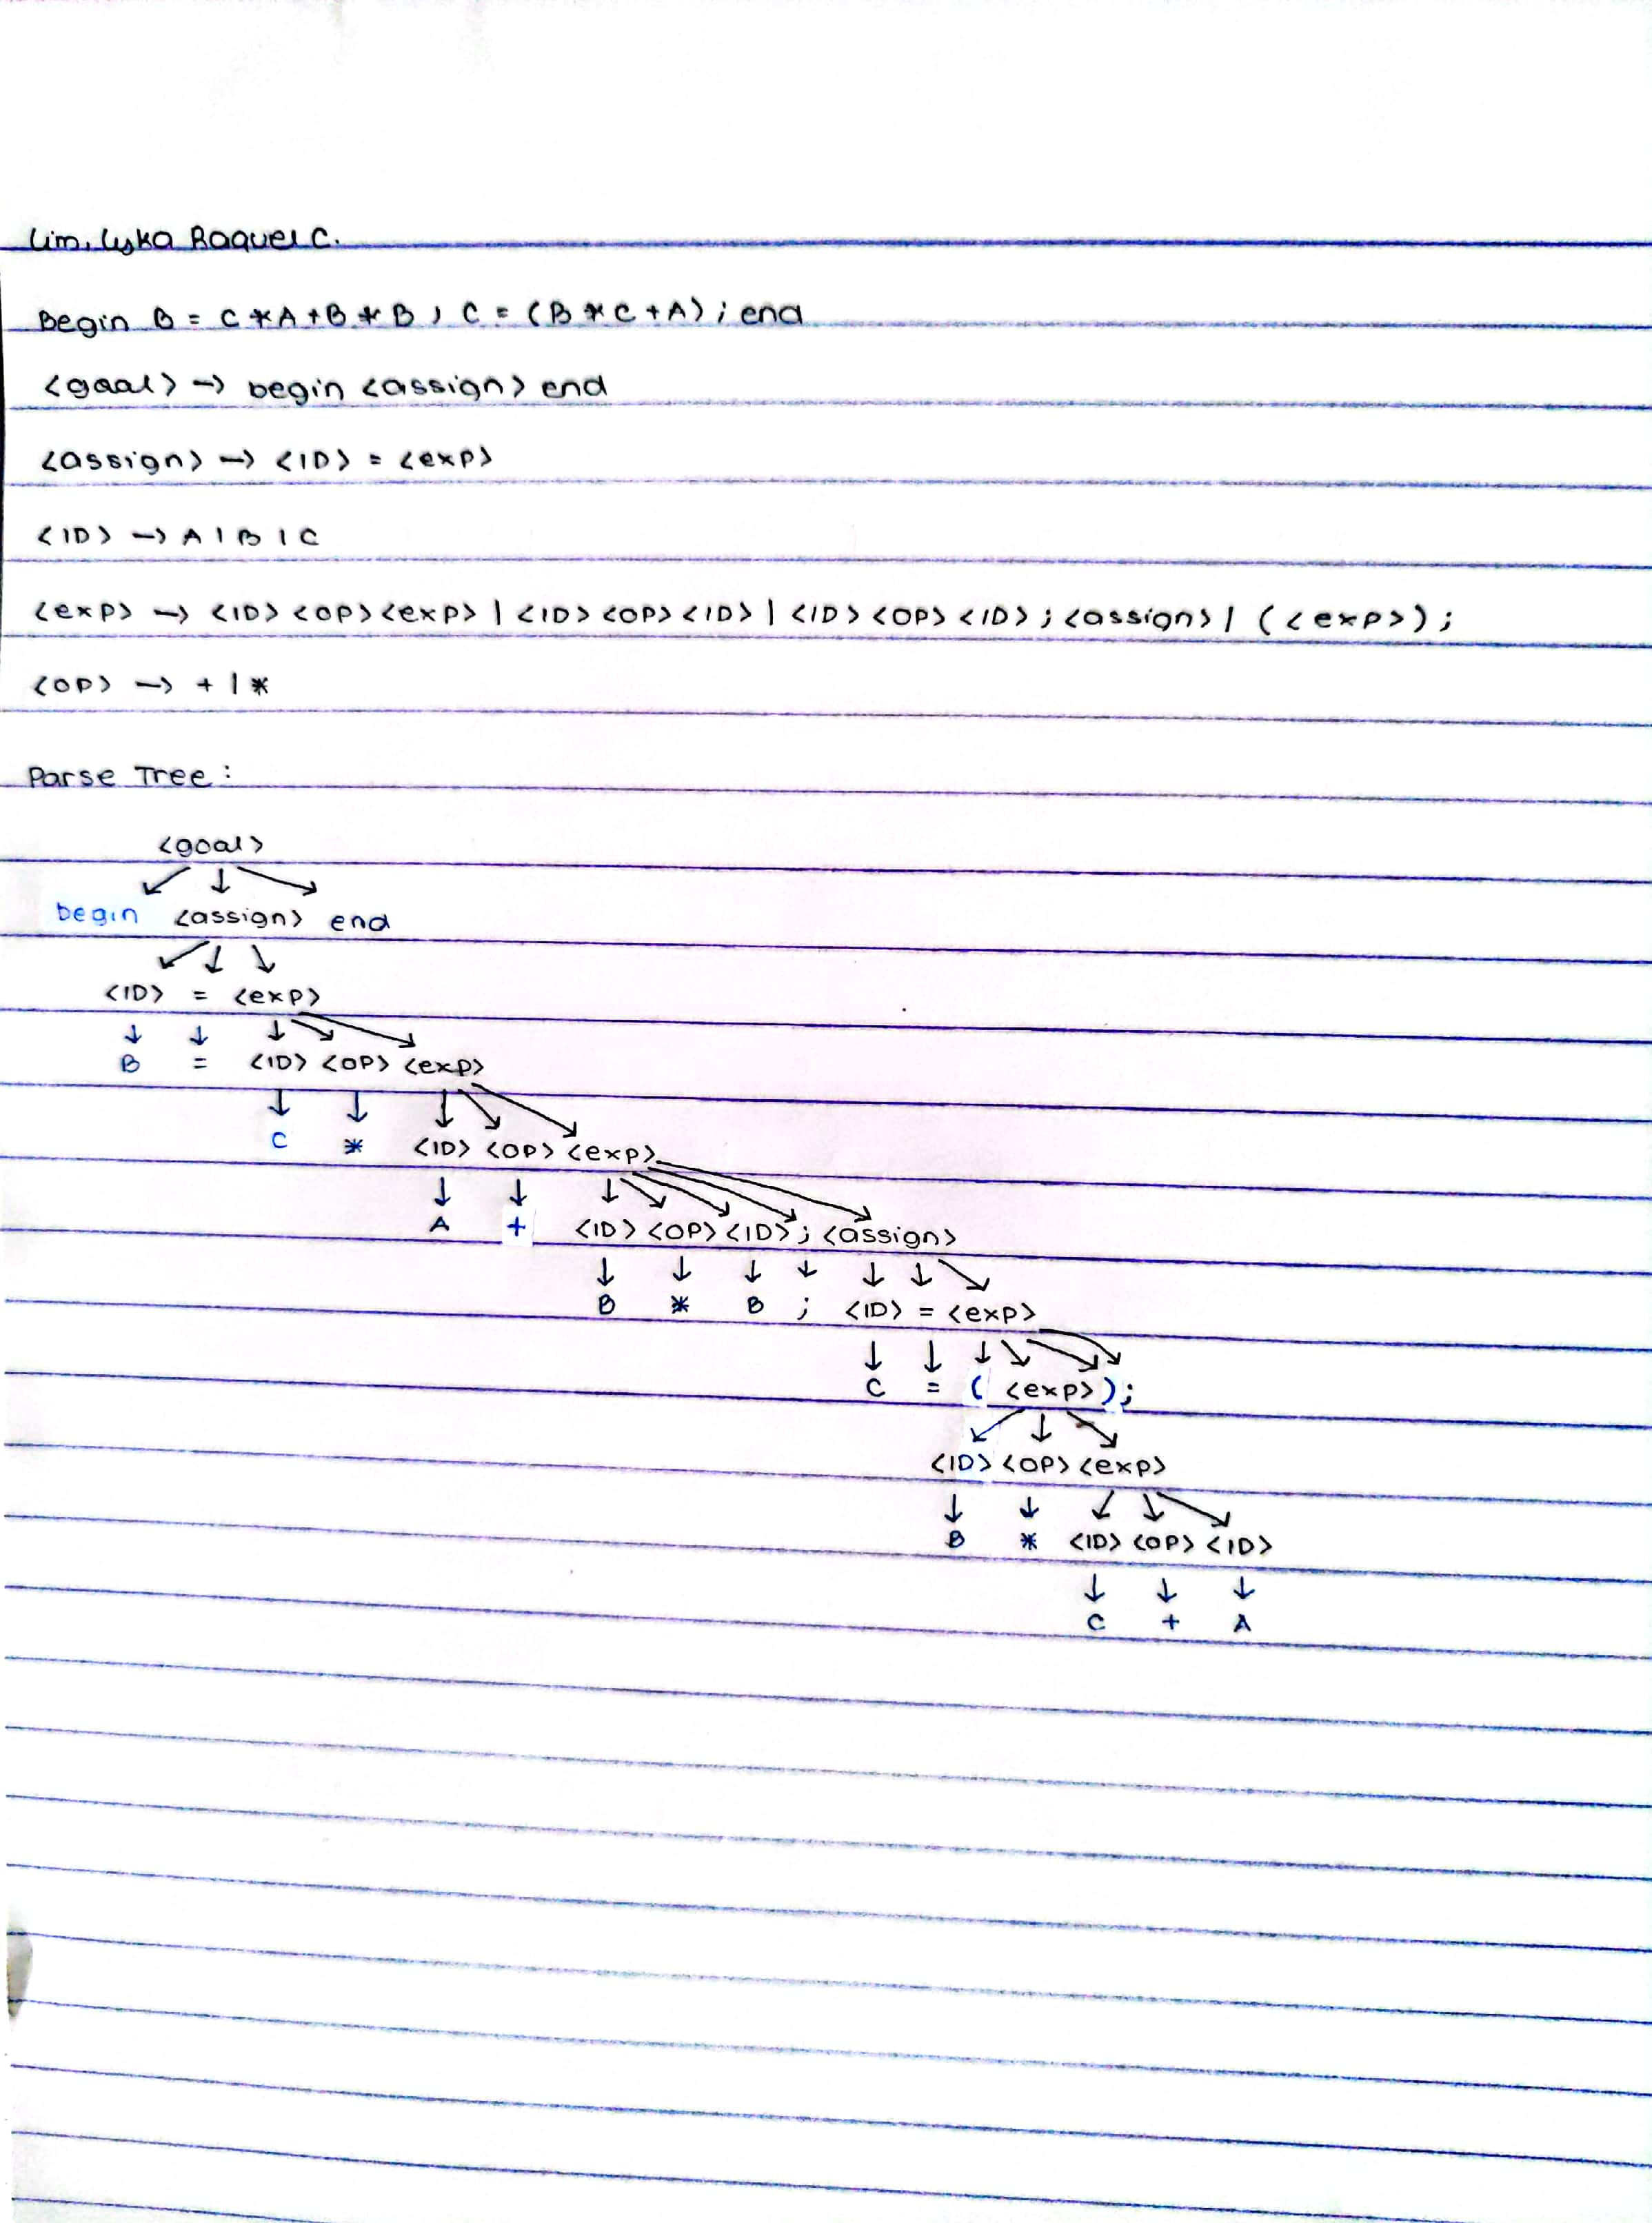 Lim, Lyka Raquel C.
Begin B = C * A + B * B ; C = (B * C + A) ; end
<goal> → begin <assign> end
<assign> → <ID> = <exp>
<ID> → A | B | C
<exp> → <ID> <OP> <exp> | <ID> <OP> <ID> | <ID> <OP> <ID> ; <assign> | ( <exp> ) ;
<OP> → + | *
Parse Tree :
<goal>
↙ ↓ ↘
begin <assign> end
↙ ↓ ↘
<ID> = <exp>
↓ ↓ ↓ ↘ ↘
B = <ID> <OP> <exp>
↓ ↓ ↓ ↘ ↘
C * <ID> <OP> <exp>
↓ ↓ ↓ ↘ ↘ ↘ ↘
A + <ID> <OP> <ID> ; <assign>
↓ ↓ ↓ ↓ ↓ ↓ ↘
B * B ; <ID> = <exp>
↓ ↓ ↓ ↘ ↘ ↘
C = ( <exp> ) ;
↙ ↓ ↘
<ID> <OP> <exp>
↓ ↓ ↙ ↓ ↘
B * <ID> <OP> <ID>
↓ ↓ ↓
C + A